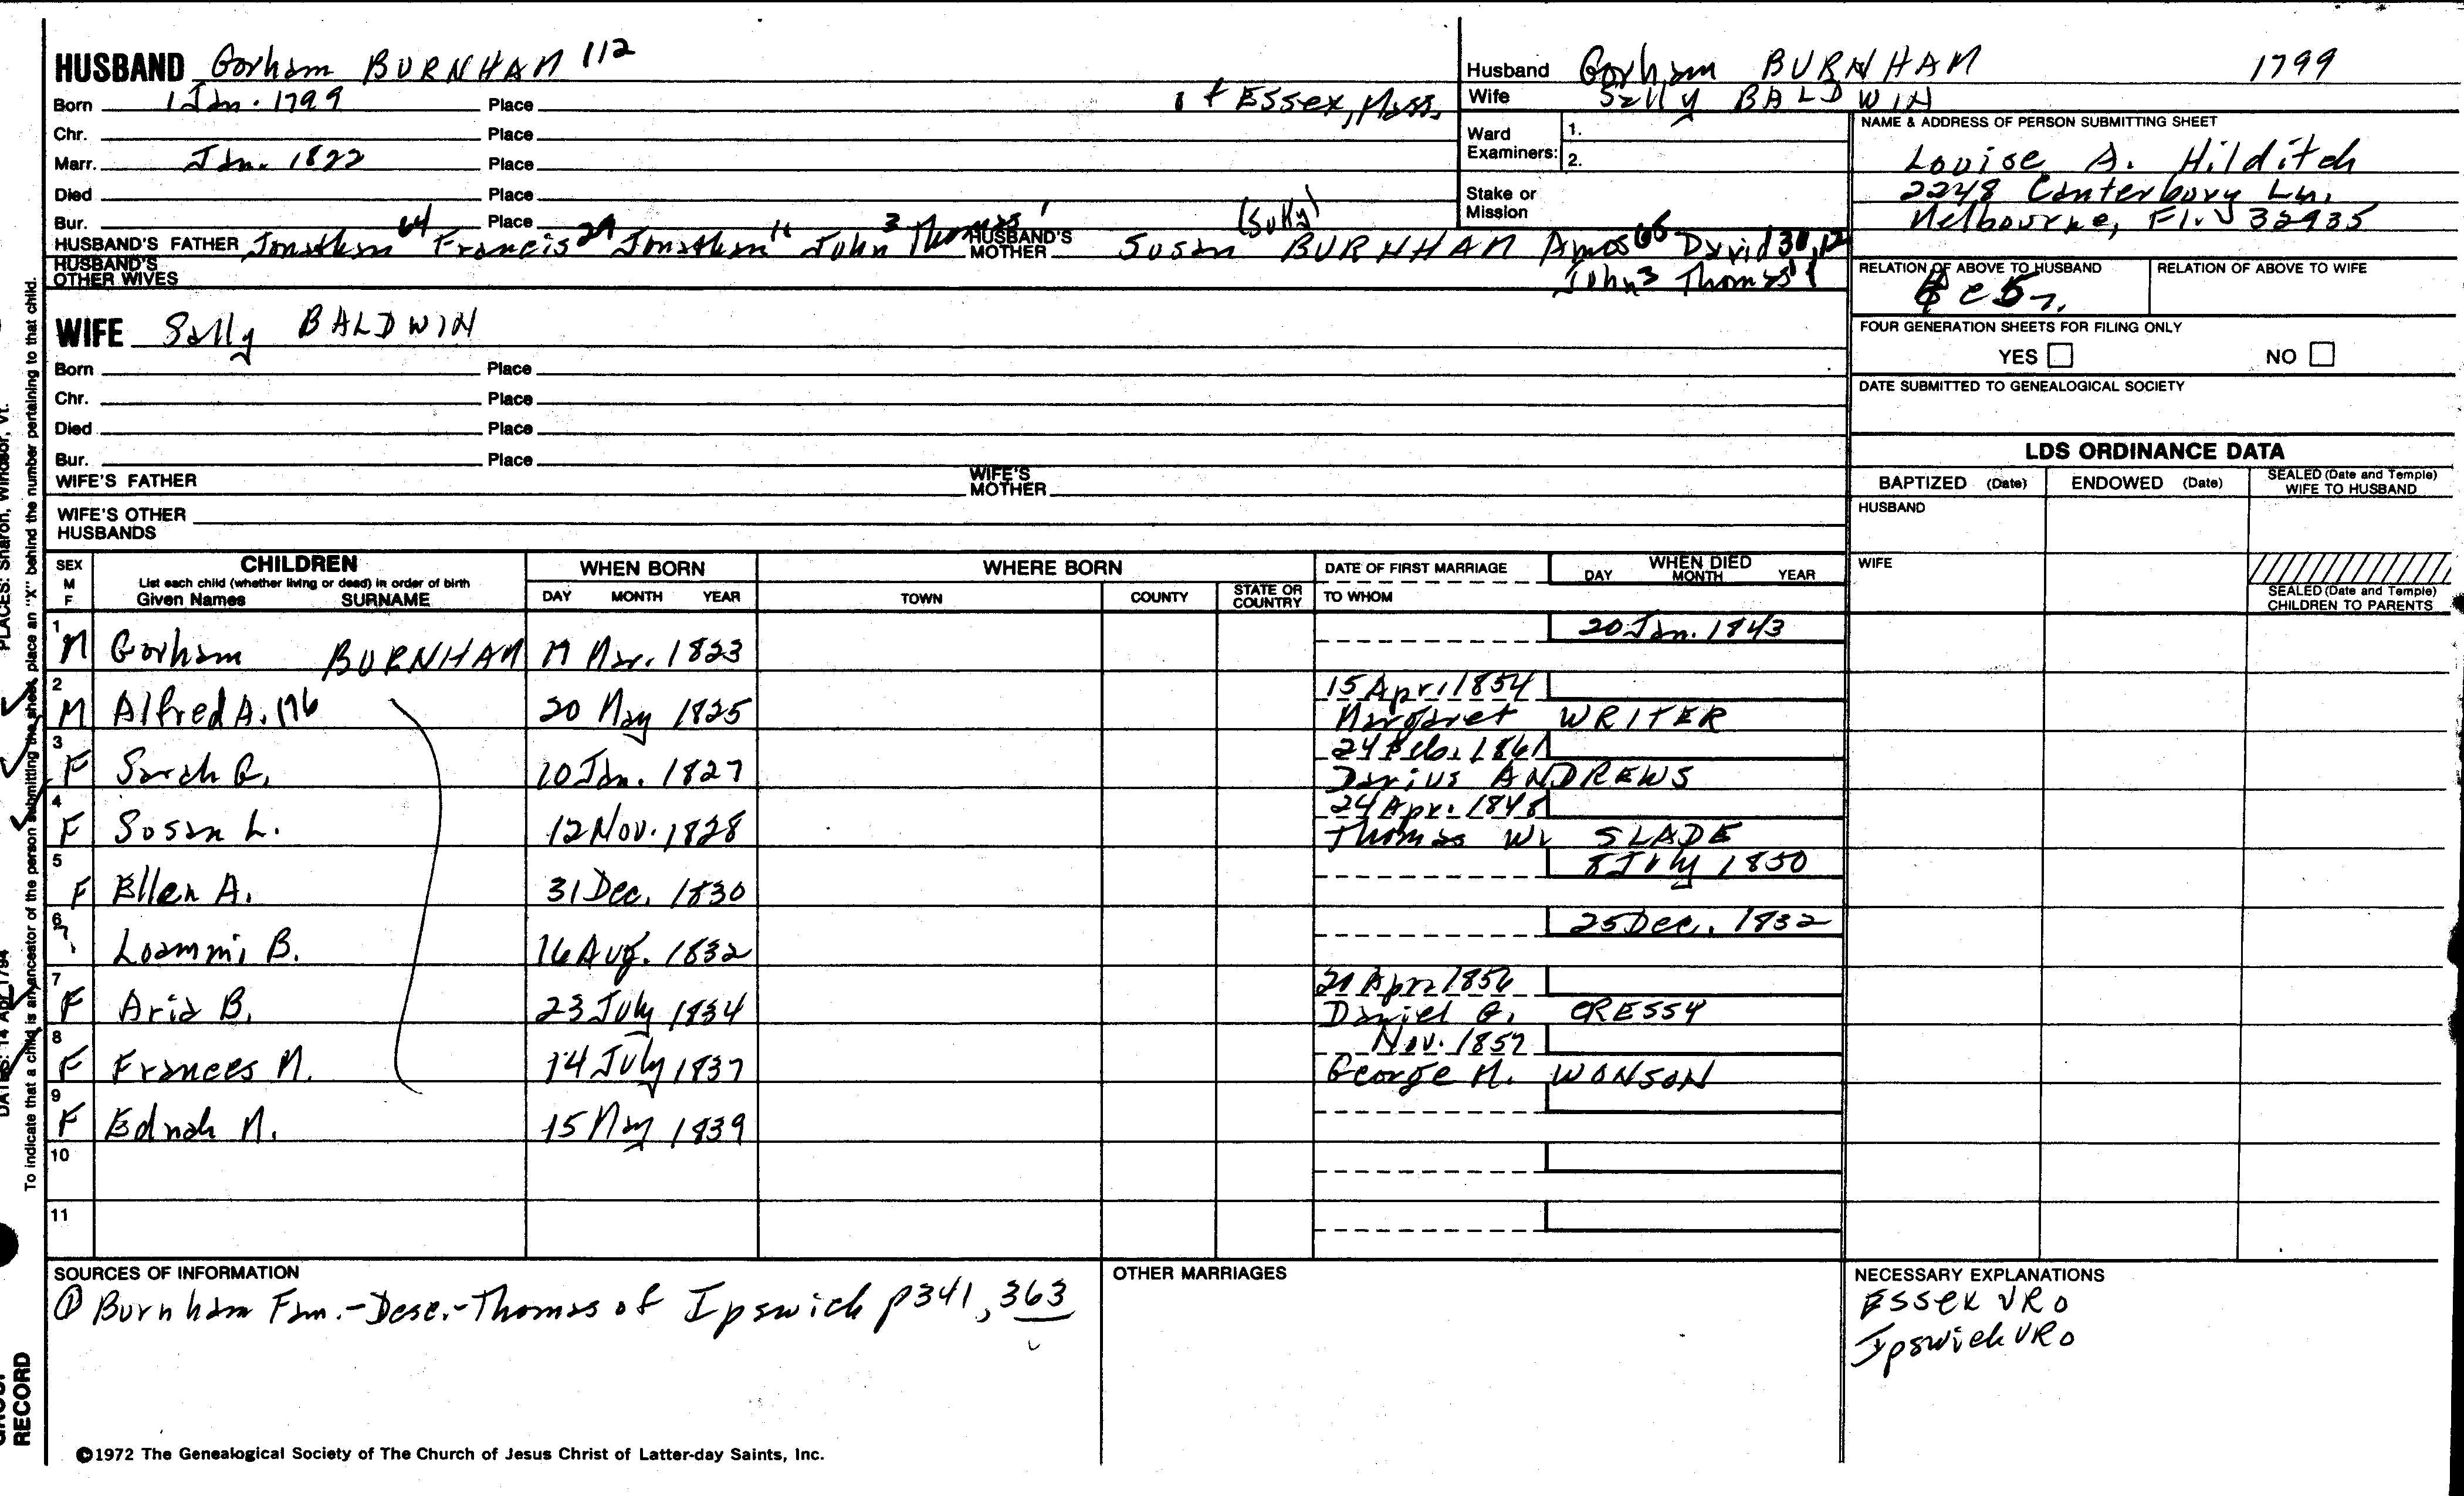 HUSBAND Gorham BURNHAM 112
Born 1 Jan. 1799 Place of Essex, Mass.
Chr. Place
Marr. Jan. 1822 Place
Died Place
Bur. Place
HUSBAND'S FATHER Jonathan 64 Francis 29 Jonathan 11 John 3 Thomas 1 HUSBAND'S MOTHER Susan (Sukey) BURNHAM Amos 66 David 30, 12
HUSBAND'S OTHER WIVES John 3 Thomas 1
WIFE Sally BALDWIN
Born Place
Chr. Place
Died Place
Bur. Place
WIFE'S FATHER WIFE'S MOTHER
WIFE'S OTHER HUSBANDS
Husband Gorham BURNHAM 1799
Wife Sally BALDWIN
Ward Examiners: 1.
2.
Stake or Mission
NAME & ADDRESS OF PERSON SUBMITTING SHEET
Louise A. Hilditch
2248 Canterbury Ln.
Melbourne, Fl. 32935
RELATION OF ABOVE TO HUSBAND RELATION OF ABOVE TO WIFE
FOUR GENERATION SHEETS FOR FILING ONLY
YES NO
DATE SUBMITTED TO GENEALOGICAL SOCIETY
LDS ORDINANCE DATA
BAPTIZED (Date) ENDOWED (Date) SEALED (Date and Temple) WIFE TO HUSBAND
HUSBAND
WIFE
SEALED (Date and Temple) CHILDREN TO PARENTS
SEX M F CHILDREN WHEN BORN WHERE BORN DATE OF FIRST MARRIAGE WHEN DIED
List each child (whether living or dead) in order of birth
Given Names SURNAME DAY MONTH YEAR TOWN COUNTY STATE OR COUNTRY TO WHOM DAY MONTH YEAR
1 M Gorham BURNHAM Mar. 1823 20 Jan. 1843
2 M Alfred A. 176 20 May 1825 15 Apr. 1854
Margaret WRITER
3 F Sarah G. 10 Jan. 1827 24 Feb. 1861
Darius ANDREWS
4 F Susan L. 12 Nov. 1828 24 Apr. 1848
Thomas W. SLADE
5 F Ellen A. 31 Dec. 1830 8 July 1850
6 Loammi B. 16 Aug. 1832 25 Dec. 1832
7 F Aria B. 23 July 1834 Apr. 1856
Daniel G. CRESSY
8 F Frances M. 14 July 1837 Nov. 1857
George M. WONSON
9 F Ednah M. 15 May 1839
10
11
SOURCES OF INFORMATION
① Burnham Fam.-Desc.-Thomas of Ipswich p341, 363
OTHER MARRIAGES
NECESSARY EXPLANATIONS
Essex VRo
Ipswich VRo
©1972 The Genealogical Society of The Church of Jesus Christ of Latter-day Saints, Inc.
To indicate that a child is an ancestor of the person submitting the sheet, place an "X" behind the number pertaining to that child.
PLACES: Sharon, Windsor, Vt.
DATES: 14 Apr 1794
GROUP
RECORD